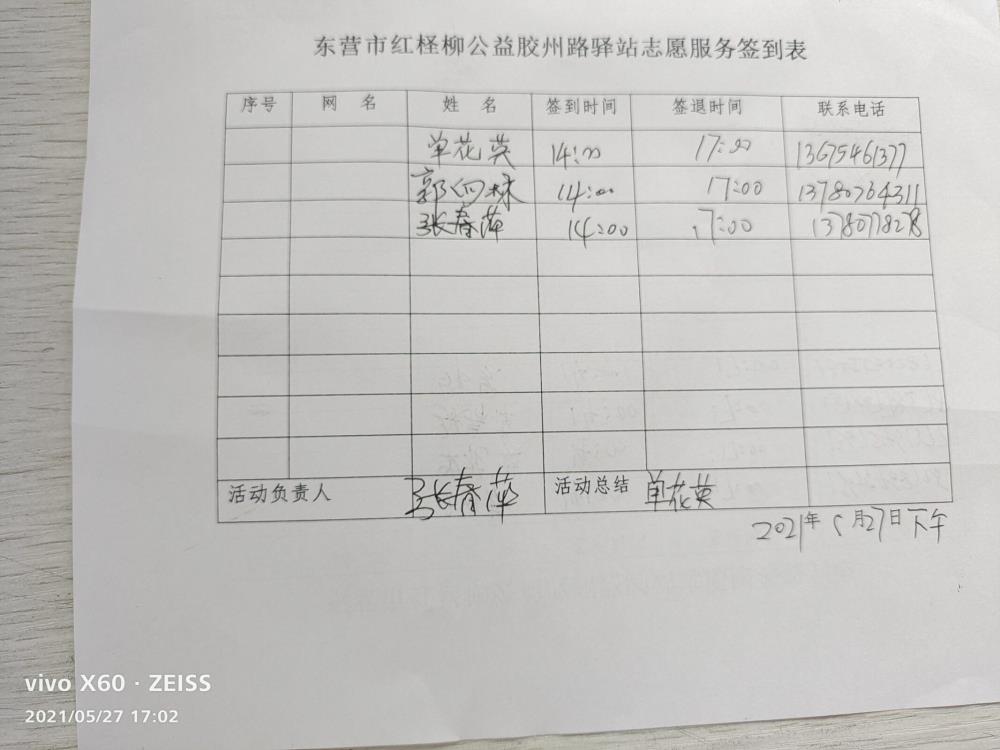 东营市红柽柳公益胶州路驿站志愿服务签到表
序号 网 名 姓 名 签到时间 签退时间 联系电话
单花英 14:00 17:00 13675461377
郭向林 14:00 17:00 13780764311
张春萍 14:00 17:00 13780778278
活动负责人 张春萍 活动总结 单花英
2021年5月27日下午
vivo X60 · ZEISS
2021/05/27 17:02